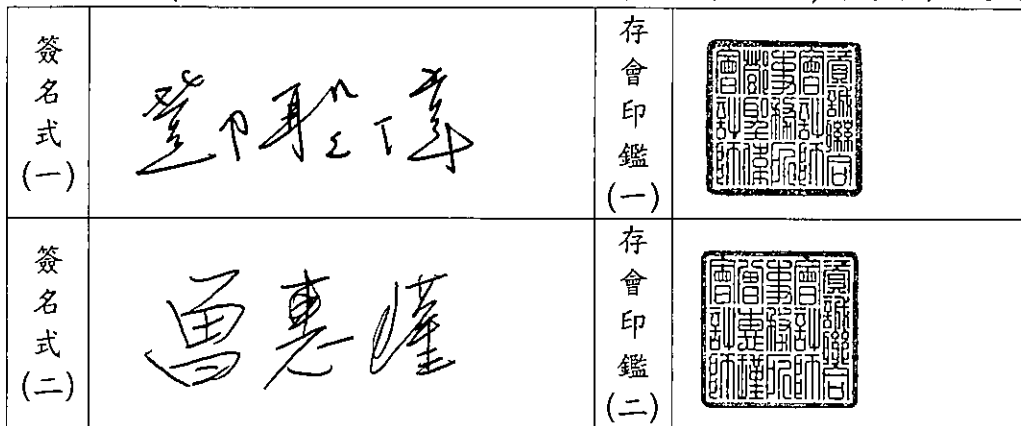 簽名式(一)
鄧聖偉
存會印鑑(一)
資誠聯合會計師事務所鄧聖偉會計師
簽名式(二)
曾惠瑾
存會印鑑(二)
資誠聯合會計師事務所曾惠瑾會計師